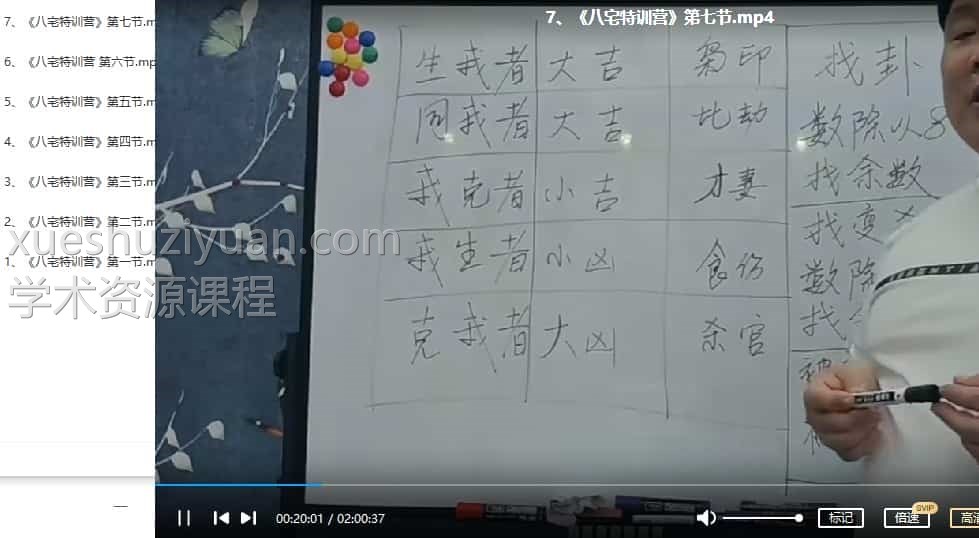 7、《八宅特训营》第七节.mp4
7、《八宅特训营》第七节.m
6、《八宅特训营 第六节.mp
5、《八宅特训营》第五节.m
4、《八宅特训营》第四节.m
3、《八宅特训营》第三节.m
2、《八宅特训营》第二节.m
1、《八宅特训营》第一节.m
xueshuziyuan.com
学术资源课程
生我者 大吉 枭印 找卦
同我者 大吉 比劫 数除以8
我克者 小吉 才妻 找余数
我生者 小凶 食伤 找变
数除
克我者 大凶 杀官 找
00:20:01 / 02:00:37
标记
倍速
SVIP
高清